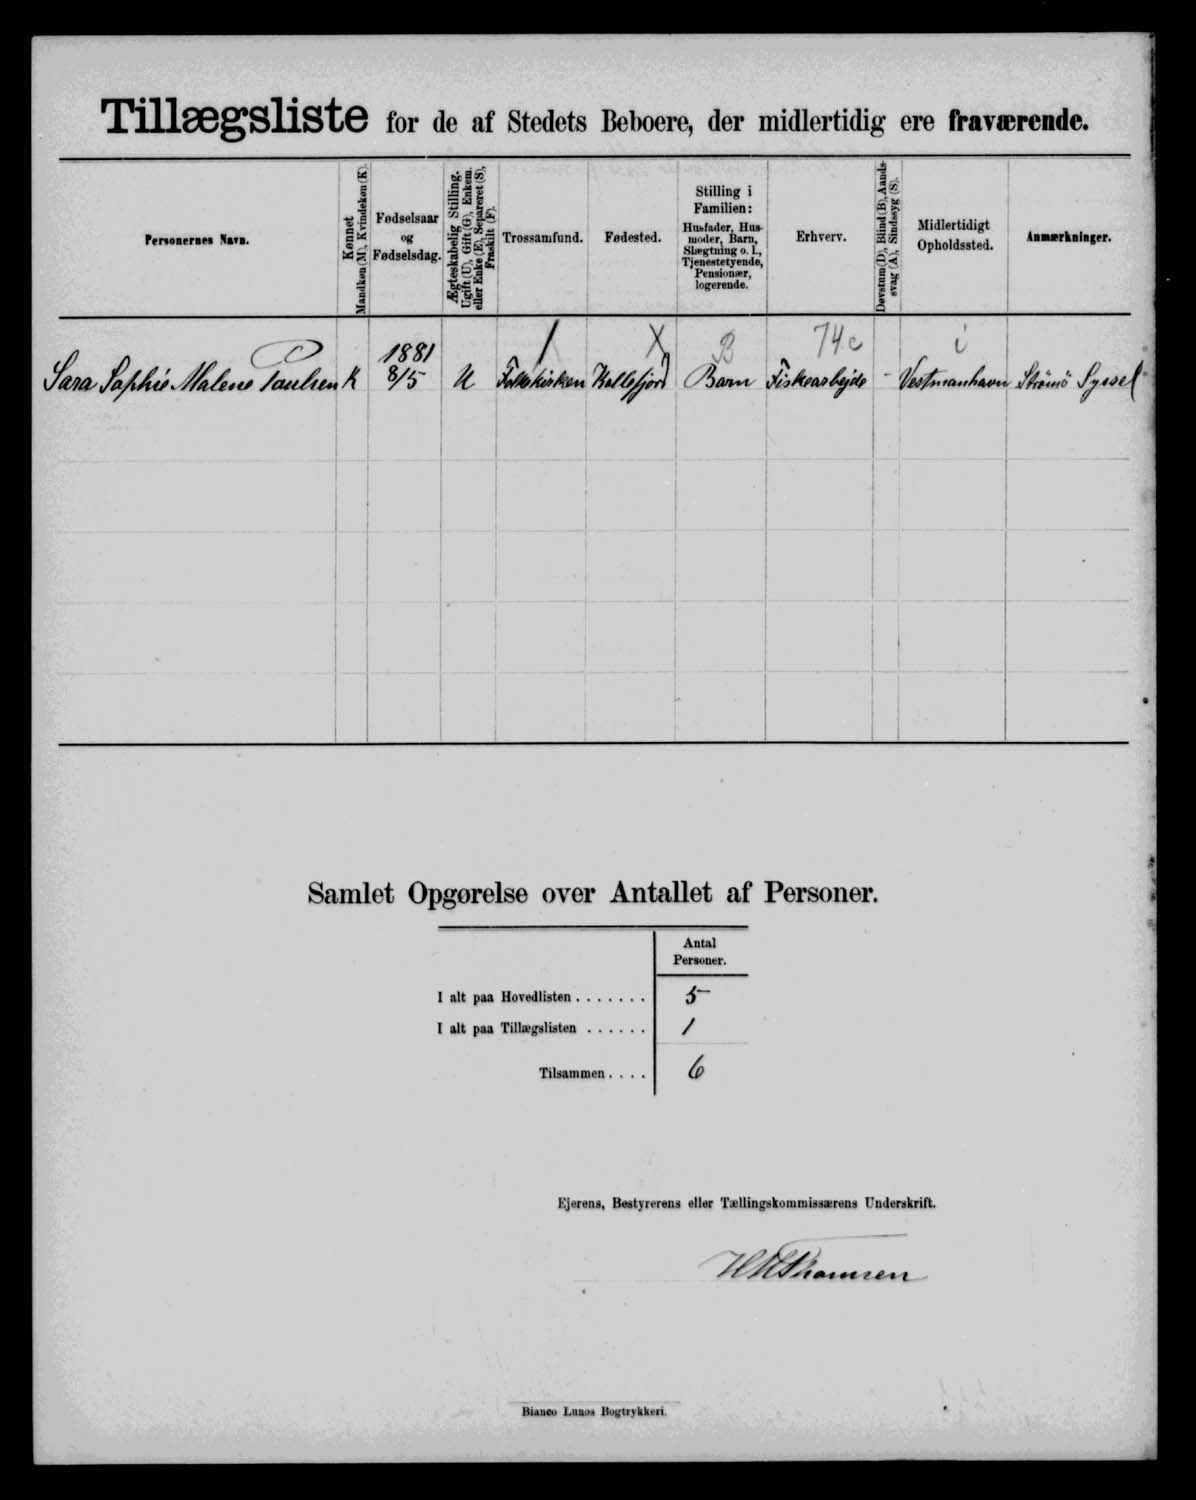 Tillægsliste for de af Stedets Beboere, der midlertidig ere fraværende.
Personernes Navn.
Kønnet
Mandkøn (M), Kvindekøn (K).
Fødselsaar
og
Fødselsdag.
Ægteskabelig Stilling.
Ugift (U), Gift (G), Enkem.
eller Enke (E), Separeret (S),
Fraskilt (F).
Trossamfund.
Fødested.
Stilling i
Familien:
Husfader, Hus-
moder, Barn,
Slægtning o. l.,
Tjenestetyende,
Pensionær,
logerende.
Erhverv.
Døvstum (D), Blind (B), Aands-
svag (A), Sindssyg (S).
Midlertidigt
Opholdssted.
Anmærkninger.
/ X B 74c i
1881
Sara Sophie Malene Poulsen K 8/5 U Folkekirken Kollefjord Barn Fiskearbejde - Vestmanhavn Strømø Syssel
Samlet Opgørelse over Antallet af Personer.
Antal
Personer.
I alt paa Hovedlisten ....... 5
I alt paa Tillægslisten ...... 1
Tilsammen .... 6
Ejerens, Bestyrerens eller Tællingskommissærens Underskrift.
Thomsen
Bianco Lunos Bogtrykkeri.